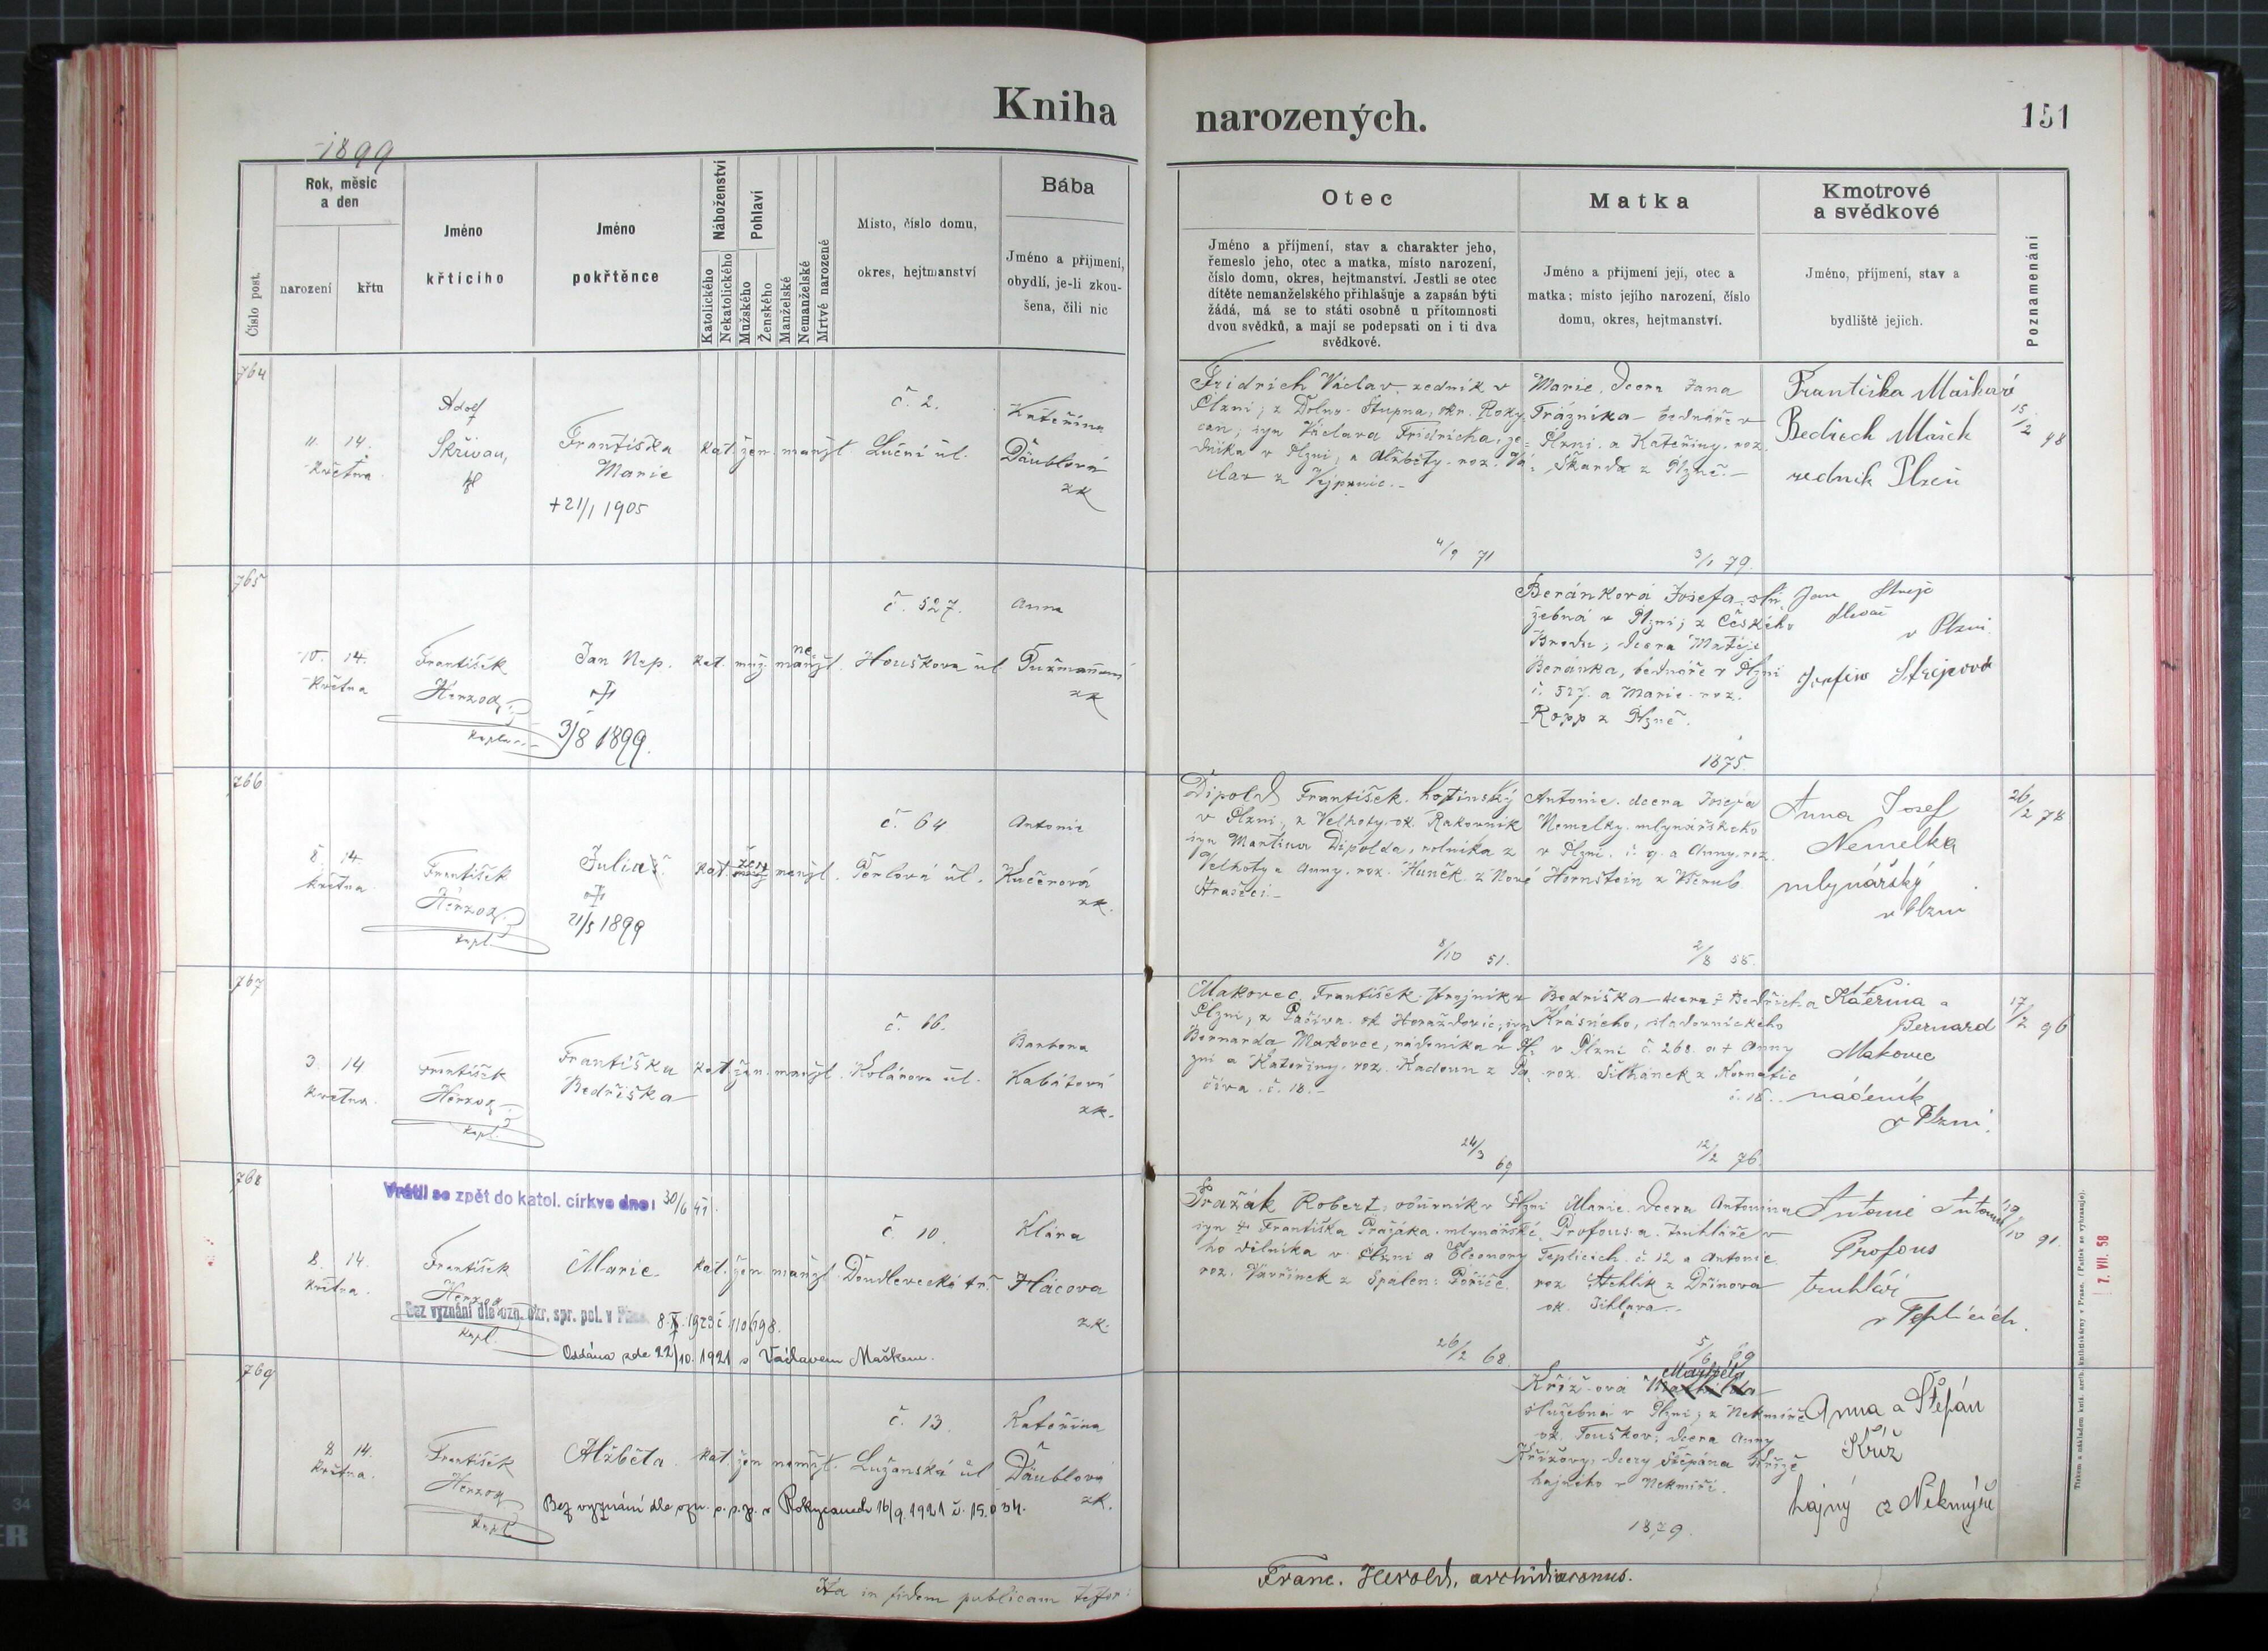 Kniha narozených.
151
1899
Číslo post.
Rok, měsíc
a den
narození
křtu
Jméno
křticího
Jméno
pokřtěnce
Náboženství
Katolického
Nekatolického
Pohlaví
Mužského
Ženského
Manželské
Nemanželské
Mrtvě narozené
Místo, číslo domu,
okres, hejtmanství
Bába
Jméno a příjmení,
obydlí, je-li zkou-
šena, čili nic
Otec
Jméno a příjmení, stav a charakter jeho,
řemeslo jeho, otec a matka, místo narození,
číslo domu, okres, hejtmanství. Jestli se otec
dítěte nemanželského přihlašuje a zapsán býti
žádá, má se to státi osobně u přítomnosti
dvou svědků, a mají se podepsati on i ti dva
svědkové.
Matka
Jméno a příjmení její, otec a
matka; místo jejího narození, číslo
domu, okres, hejtmanství.
Kmotrové
a svědkové
Jméno, příjmení, stav a
bydliště jejich.
Poznamenání
764
11. 14.
Května
Adolf
Skřivan,
Františka
Marie
+21/1 1905
kat. žen. manžl.
č. 2.
Luční ul.
Kateřina
Däublová
zk
Fridrich Václav zedník v
Plzni, z Dolno-Stupna, okr. Roky-
can; syn Václava Fridricha, ze-
dníka v Plzni, a Alžběty roz. Vá-
clav z Vejpernic.-
4/9 71
Marie, dcera Jana
Trázníka bednáře v
Plzni a Kateřiny, roz.
Škarda z Plzně.-
3/1 79.
Františka
Bedřich Mašek
zedník Plzeň
15/2 98
765
10. 14.
Května
František
Herzog
kaplan
Jan Nep.
3/8 1899.
kat. muž. nemanžl.
č. 527.
Houškova ul
Anna
zk
Beránková Josefa, slu-
žebná v Plzni; z Českého
Brodu; dcera Matěje
Beránka, bednáře v Plzni
č. 527. a Marie roz.
Ropp z Plzně.
1875.
Jan
v Plzni
Strejcová
766
8. 14.
května
František
Herzog
kapl.
Julia
21/5 1899
kat. žen. manžl.
č. 64
Perlová ul.
Antonie
Kučerová
zk.
Dipold František, hostinský
v Plzni, z Velhoty ok. Rakovník
syn Martina Dipolda, rolníka z
Velhoty a Anny, roz. Huněk z Nové
Strašecí.-
8/10 51.
Antonie, dcera Josefa
Nemelky, mlynářského
v Plzni č. 9. a Anny, roz.
Hornstein z Všerub
2/8 58.
Anna Josef
Nemelka
mlynářský
v Plzni
26/2 78
767
3. 14
Května.
František
Herzog
kapl.
Františka
Bedřiška
kat. žen. manžl.
č. 66.
Kolárova ul.
Barbora
Kabátová
zk.
Makovec František, strojník v
Plzni, z Pačiva ok Horažďovic, syn
Bernarda Makovce, nádeníka v Pl-
zni a Kateřiny, roz. Kadoun z Pa-
čiva č. 18.-
24/3 69
Bedřiška dcera + Bedřicha
Krásného, sladovnického
v Plzni č. 268. a + Anny
roz. Šilhánek z Kornatic
č. 18.
12/2 76.
Kateřina a
Bernard
Makovec
nádeník
v Plzni.
17/2 96
768
Vrátil se zpět do katol. církve dne: 30/6 41.
8. 14.
května.
František
Herzog
kapl.
Marie
kat. žen manžl
č. 10.
Doudlevecká tř.
Klára
Hácova
zk.
Bez vyznání dle ozn. okr. spr. pol. v Plzni 8.X.1923 č 110698.
Oddána zde 22/10. 1921 s Václavem Maškem.
Pražák Robert, obuvník v Plzni
syn + Františka Pražáka, mlynářské-
ho dělníka v Plzni a Eleonory
roz. Vavřinek z Spálen: Poříčí.
26/2 68.
Marie dcera Antonína
Profousa, truhláře v
Teplicích č. 12 a Antonie
roz Stehlík z Dřínova
ok. Jihlava.-
5/6 69
Antonie Antonín
Profous
truhlář
v Teplicích.
19/10 91.
769
8 14.
května.
František
Herzog
kapl
Alžběta
kat. žen nemžl.
č. 13.
Lužanská ul
Kateřina
Däublová
zk.
Bez vyznání dle ozn. o.p.s. v Rokycanech 16/9. 1921 č. 15.034.
Křížová Markéta
služebná v Plzni; z Nekmíře
ok. Touškov; dcera Anny
Křížovy, dcery Štěpána Kříže
hajného v Nekmíři.
1879.
Anna a Štěpán
Kříž
hajný z Nekmíře
Ita in fidem publicam testor:
Franc. Herold, archidiaconus.
7. VII. 58